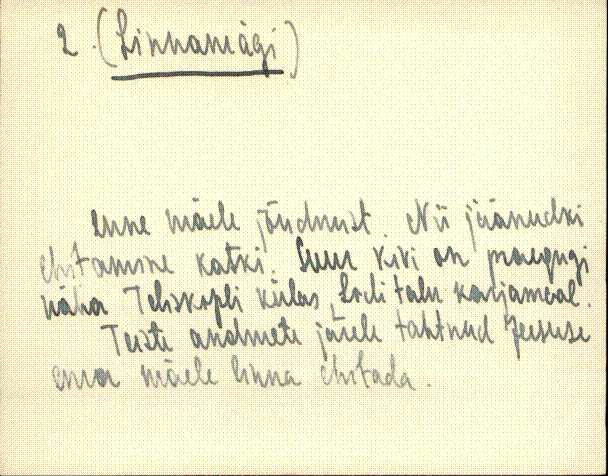 2. (Linnamägi)
enne mäele jõudmist. Nii jäänudki
ehitamine katki. Suur kivi on praegugi
näha külas, talu karjamaal.
Teiste andmete järele tahtnud Jeesuse
ema mäele linna ehitada.